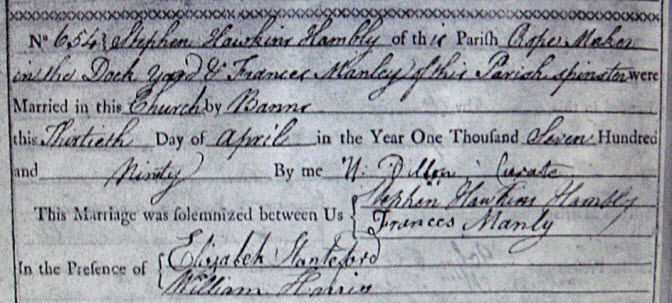 No 654 } Stephen Hawkins Hambly of this Parish Rope Maker
in the Dock Yard & Frances Manley of this Parish spinster were
Married in this Church by Banns
this Thirtieth Day of April in the Year One Thousand Seven Hundred
and Ninety By me N: Dillon : Curate
This Marriage was solemnized between Us { Stephen Hawkins Hambly
Frances Manly
In the Presence of { Elizabeth Stanteford
William Harris